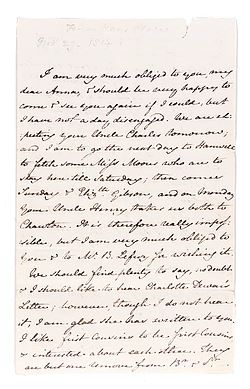 I am very much obliged to you, my
dear Anna, & should be very happy to
come & see you again if I could, but
I have not a day disengaged. We are ex-
pecting your Uncle Charles tomorrow;
and I am to go the next day to Hanwell
to fetch some Miss Moores who are to
stay here till Saturday; then comes
Sunday & Eliz.th Gibson, and on Monday
Your Uncle Henry takes us both to
Chawton. It is therefore really impos-
sible, but I am very much obliged to
You & to Mr B. Lefroy for wishing it.
We should find plenty to say, no doubt
& I should like to hear Charlotte Dewar's
Letter; however, though I do not hear
it, I am glad she has written to you.
I like first Cousins to be first Cousins
& interested about each other. They
are but one remove from Br & Sr